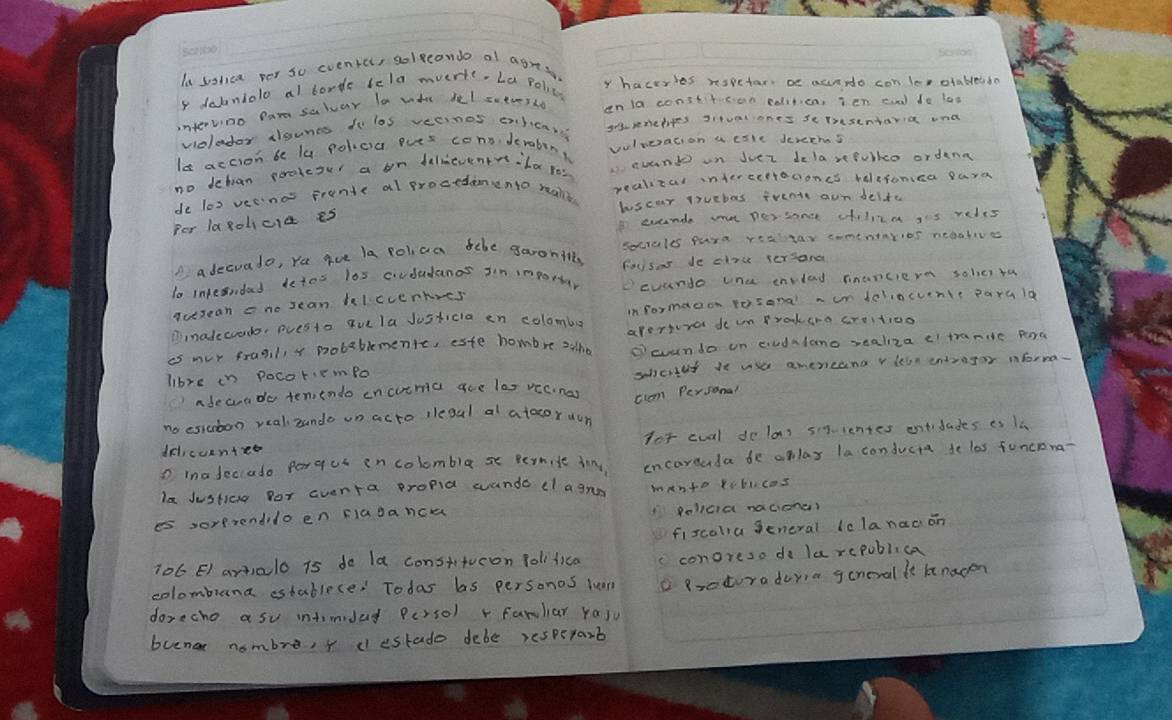 Scribe
la Justica por su cuenta, golpeando al agresor
y dejandolo al borde de la muerte. La Polic
intervino para salvar la vida del supuesto
violador algunos de los vecinos critica
la acción de la policia pues consideraban
no debian proteger a un delincuente. La
de los vecinos frente al procedimiento realiz
Por la policia es
A adecuado, ya que la policia debe garantiz
la integridad de tos los ciudadanos sin importar
que sean o no sean delicuentres
inadecuado. puesto que la Justicia en colombia
es muy fragil, y probablemente, este hombre
libre en poco tiempo
adecuado teniendo encuenta que los vecinos
no estaban realizando un acto ilegal al atacar aun
delicuente
D inadecado porque en colombia se permite
la Justicia por cuenta propia cuando el
es sorprendido en flagancia
106 El articulo 15 de la constitucion Politica
colombiana establece: Todas las personas
derecho a su intimidad Persol y Familiar ya su
buena nombre, y el estado debe respetarb
Scribe
y hacerlos respetar. De acuerdo con lo
en la constitucion politica, en cual de las
situaciones se presentaria una
vulneracion a este derecho
cuando un Juez de la republica ordena
realizar interceptaciones telefonica para
buscar pruebas frente aun delito
cuando una persona utiliza sus redes
sociales para realizar comentarios negativos
falsos de otra persona
cuando una entidad financiera solicita
informacion personal a un delincuente para la
apertura de un
D cuando un ciudadano realiza el tramite para
solicitud de visa americana y debe entregar informa-
cion Personal
107 cual de las siguientes entidades es la
encargada de la conducta de los funciona-
publicos
policia nacional
fiscalia General de la nación
c congreso de la republica
D Procuraduria general de la nacion